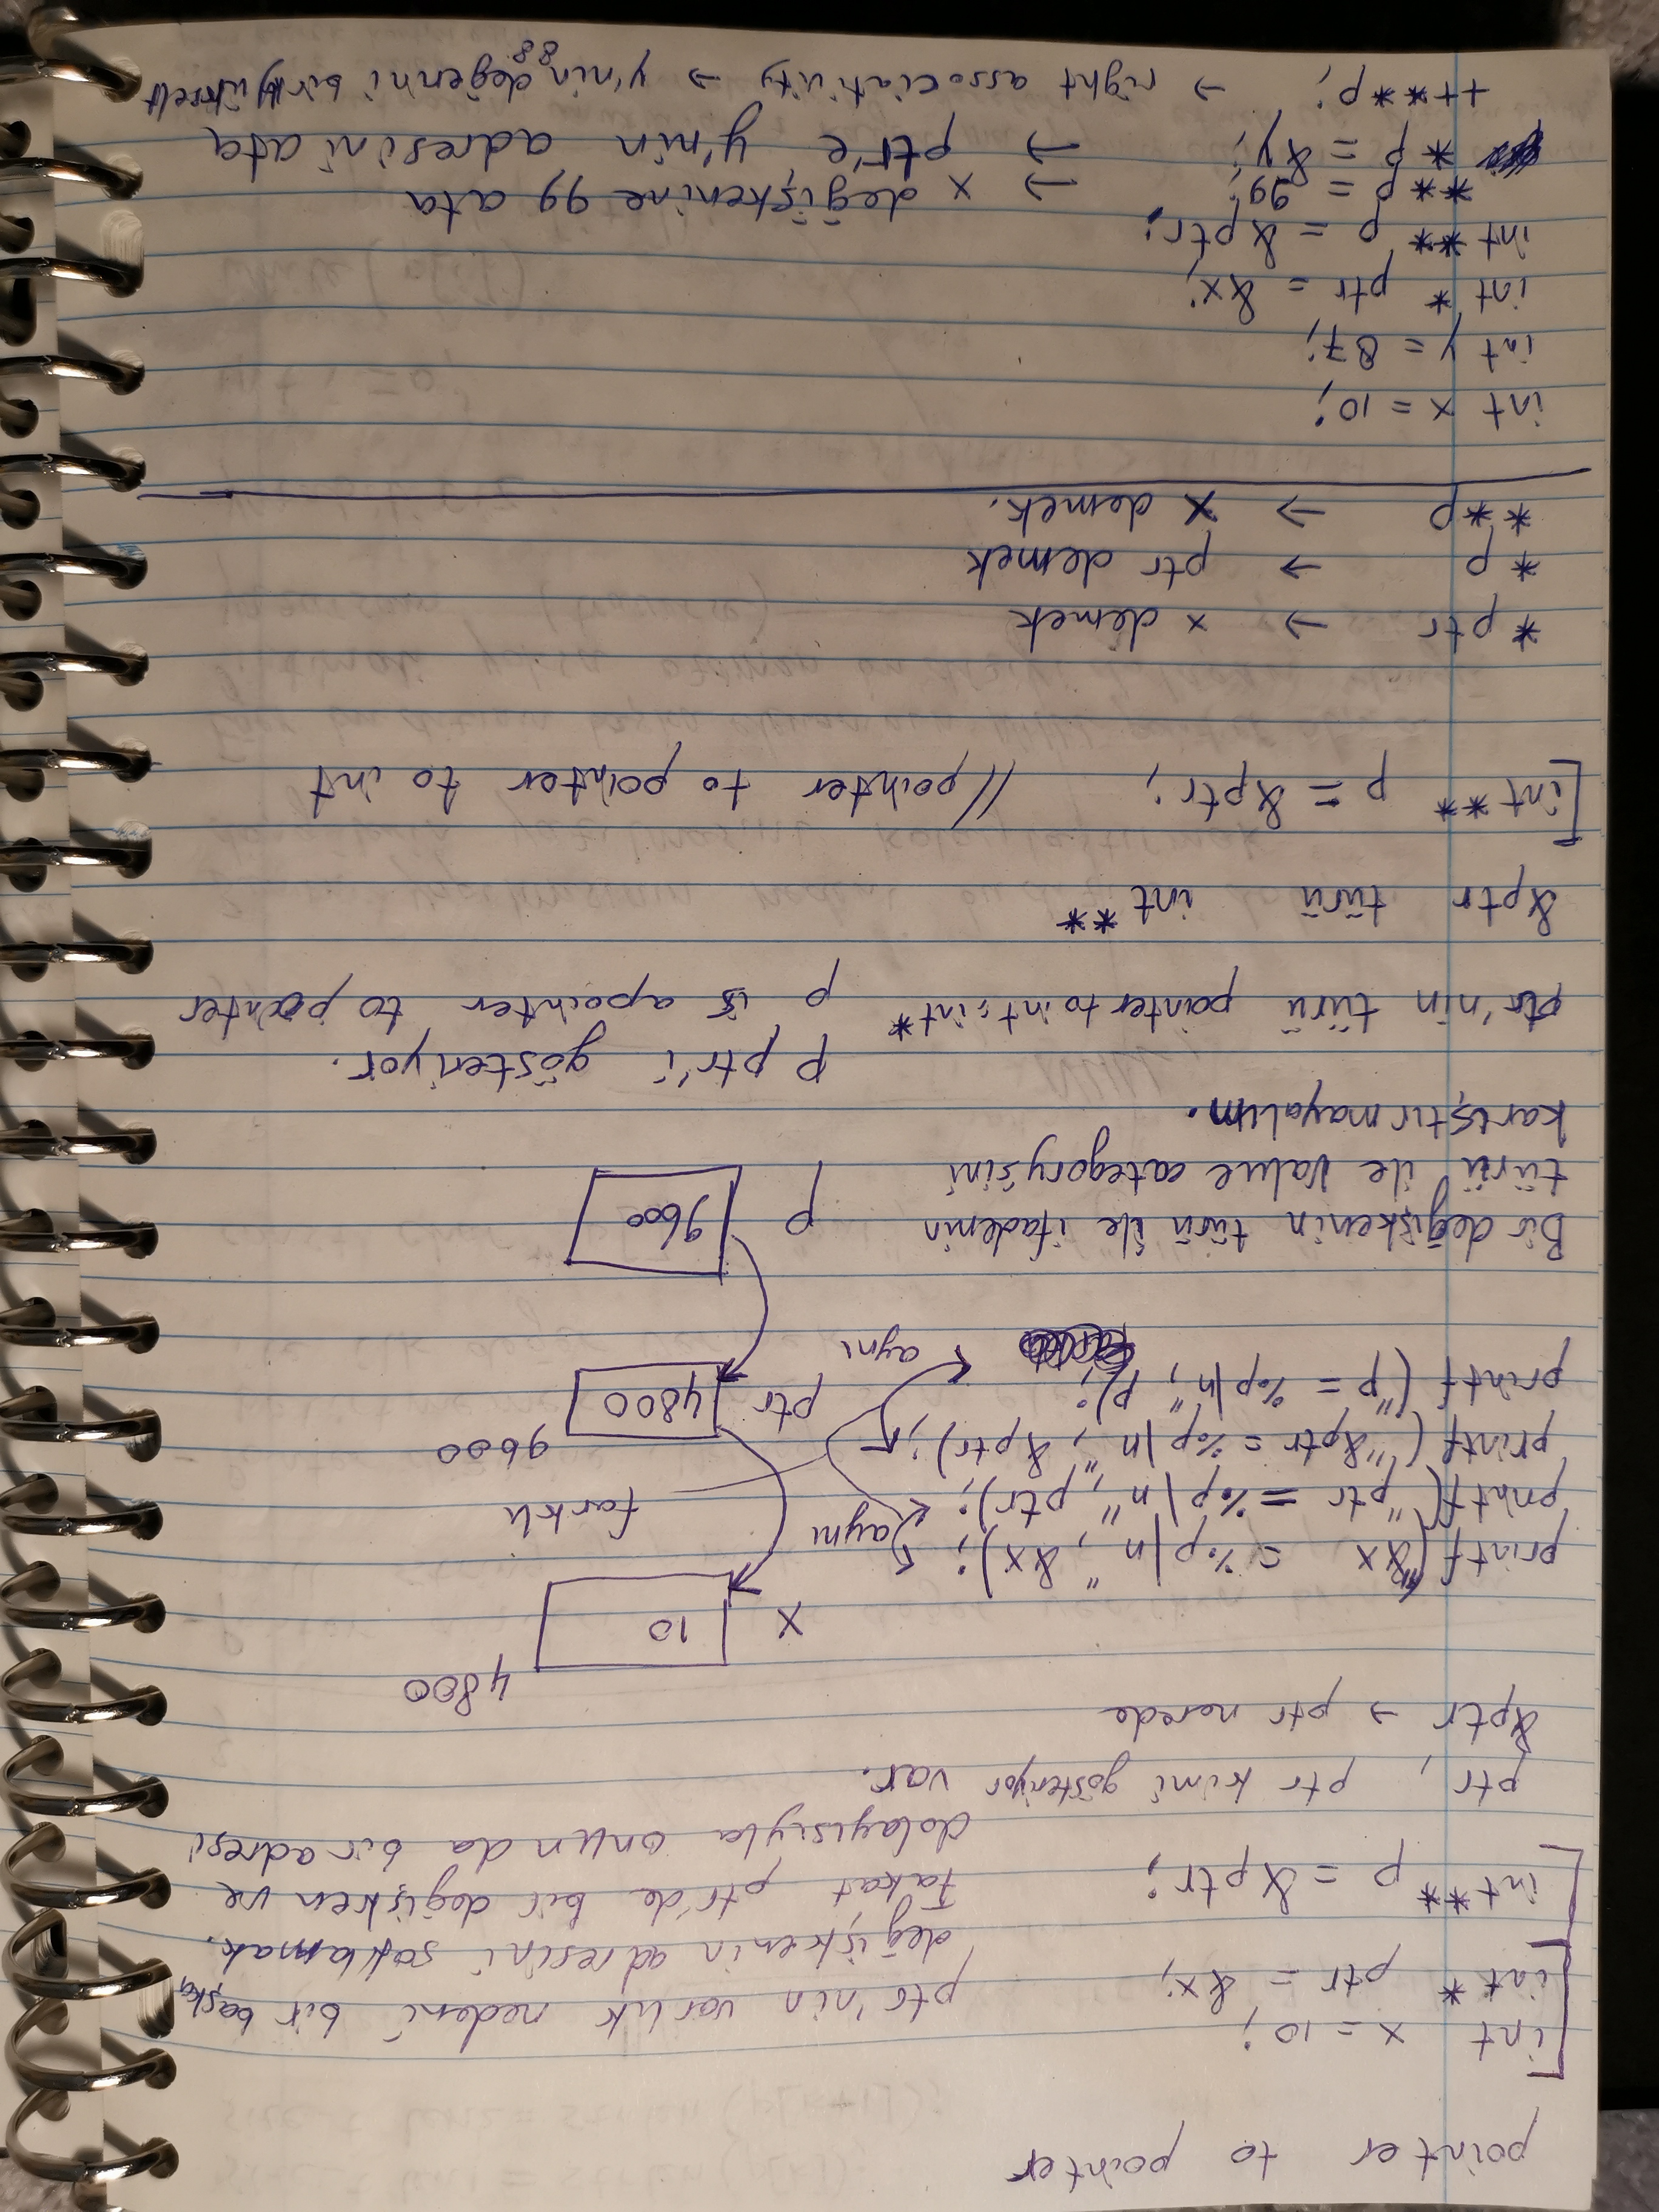 pointer to pointer
int x = 10;
int* ptr = &x;
int** p = &ptr;
ptr'nin varlık nedeni bir başka
değişkenin adresini saklamak.
Fakat ptr'de bir değişken ve
dolayısıyla onun da bir adresi
var.
ptr, ptr kimi gösteriyor
&ptr → ptr nerede
x 10 4800
printf("&x = %p\n", &x);
printf("ptr = %p\n", ptr);
printf("&ptr = %p\n", &ptr);
printf("p = %p\n", p);
aynı
farklı
aynı
ptr 4800 9600
p 9600
Bir değişkenin türü ile ifadenin
türü ile value category'sini
karıştırmayalım.
p ptr'i gösteriyor.
p is a pointer to pointer
ptr'nin türü pointer to int : int*
&ptr türü int**
int** p = &ptr; //pointer to pointer to int
*ptr → x demek
*p → ptr demek
**p → x demek.
int x = 10;
int y = 87;
int* ptr = &x;
int** p = &ptr;
**p = 99; → x değişkenine 99 ata
*p = &y; → ptr'e y'nin adresini ata
++**p; → right associativity → y'nin değerini bir yükselt
88